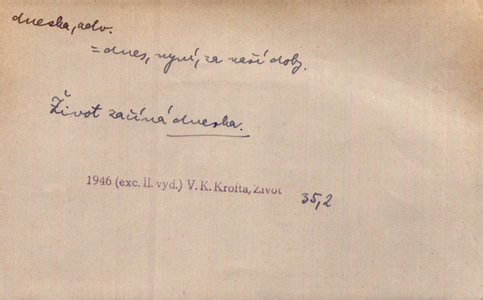 dneska, adv.
= dnes, nyní, za naší doby.
Život začíná dneska.
1946 (exc. II. vyd.) V. K. Krofta, Život
35,2